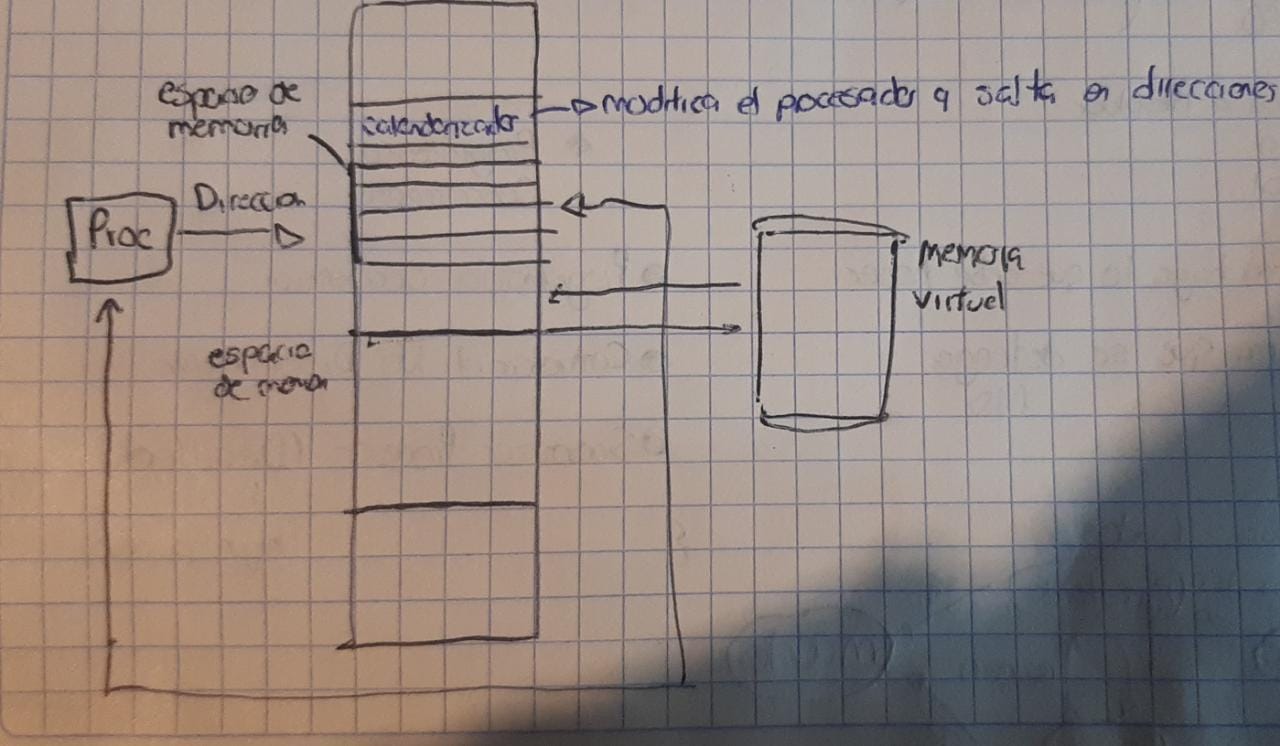 espacio de
memoria
calendarizador
modifica el procesador q salta en direcciones
Direccion
Proc
memoria
virtuel
espacio
de